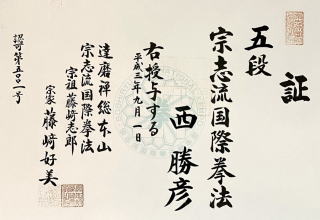 証
五段
宗志流国際拳法
西勝彦
右授与する
平成三年九月一日
達磨禅総本山
宗志流国際拳法
宗祖藤﨑志郎
宗家藤﨑好美
認可第五〇一号